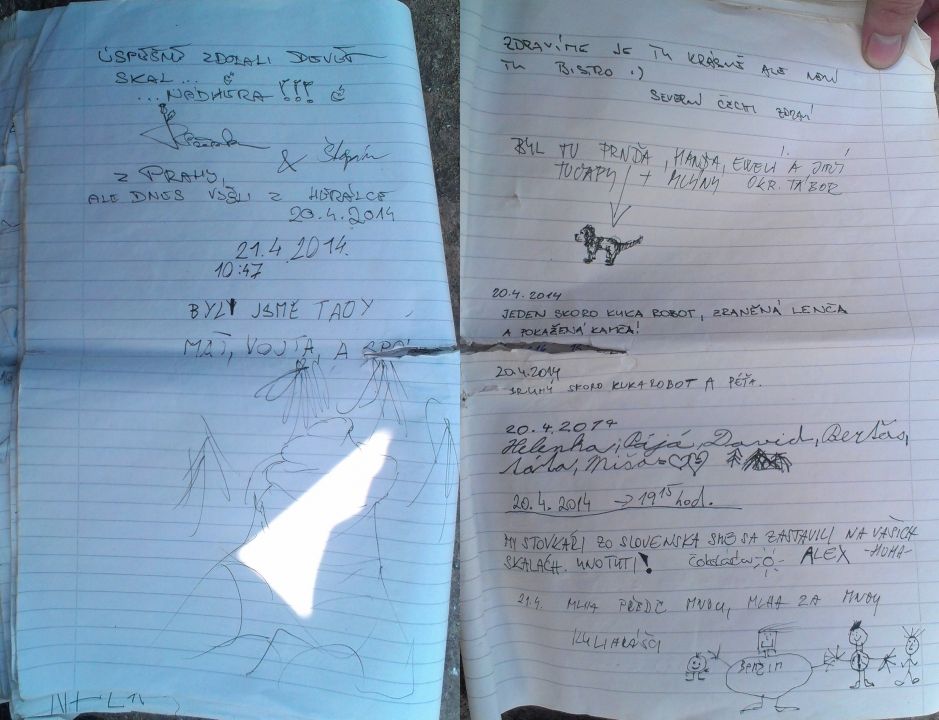 ÚSPĚŠNĚ ZDOLALI DEVĚT
SKAL...
...NÁDHERA!!!
&
Z PRAHY,
ALE DNES VYŠLI Z HERÁLCE
20.4.2014
21.4.2014.
10:47
BYLI JSME TADY
MÁŤ, VOJTA, A
ZDRAVÍME JE TU KRÁSNĚ ALE NENÍ
TU BISTRO :)
SEVERNÍ ČECHI ZDRAVÍ
BYL TU PRNĎA, HANĎA, EWELÍ A JIŘÍ
TUČAPY + MLÝNY OKR. TÁBOR
20.4.2014
JEDEN SKORO KUKA ROBOT, ZRANĚNÁ LENČA
A POKAŽENÁ KAMČA!
20.4.2014
DRUHÝ SKORO KUKAROBOT A PÉŤA.
20.4.2014
Helenka, Pájá, David, Berťas,
Míša
20.4.2014 → 19¹⁵ hod.
MY STOVKÁŘI ZO SLOVENSKA SME SA ZASTAVILI NA VAŠICH
SKALÁCH. UNOTUTI! ALEX -HUHA-
21.4. MLHA PŘEDE MNOU, MLHA ZA MNOU
BENZIN